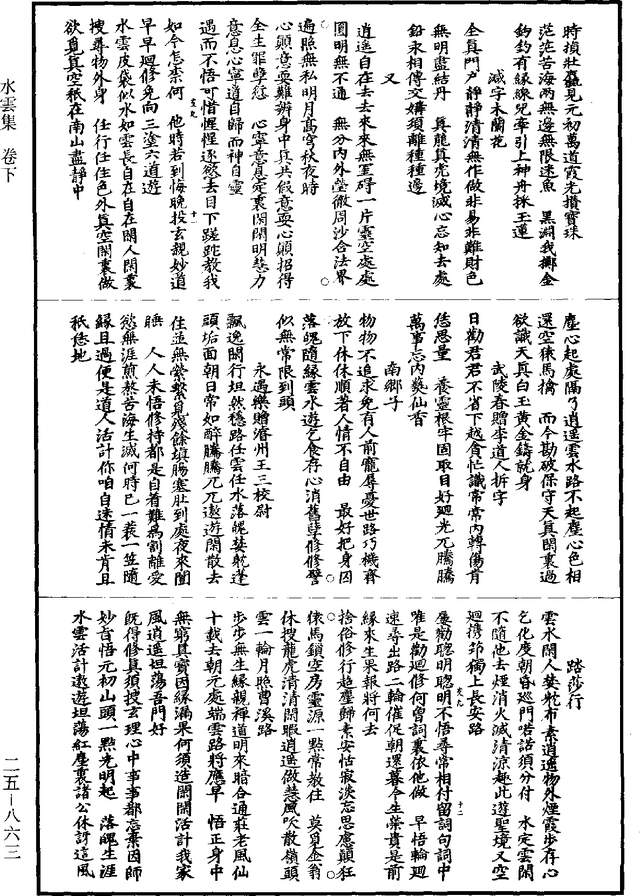 水雲集　卷下
二五—八六三
時損壯龜見元初萬道霞光攢寶珠
茫茫苦海兩無邊無限迷魚　黑淵我擲金
鈎釣有緣線兒牽引上神舟採玉蓮
減字木蘭花
全真門户靜靜清清無作做非易非難財色
無明盡結丹　真龍真虎境滅心忘知去處
鉛永相傳交媾須離種種邊
又
逍遥自在去去來來無罣碍一片靈空處處
圓明無不通　無分內外瑩徹周沙合法界
遍照無私明月高宫秋夜時
心顛意耍難辨身中真共假意耍心顛招得
全生罪孽愆　心寧意息定裏閑閑明慧力
意息心寧道自歸而神自靈
遇而不悟可惜惺惺逐慾去目下蹉跎教我
如今怎柰何　他時若到悔晚投玄親妙道
早早迴修免向三塗六道遊
水雲皮袋似水如雲長自在自在閑人閑裏
搜尋物外身　任行任住色外真空閑裏做
欲覓真空秖在南山盡静中
塵心起處隔了逍遥雲水路不起塵心色相
還空猿馬擒　而今勘破保守天真閑裏過
欲識天真白玉黄金鑄就身
武陵春贈李道人拆字
日勸君君不省下越貪忙識常常內轉傷肯
恁思量　養靈根牢固取目好迴光兀騰騰
萬事忘內藥仙香
南鄉子
物物不追求免有人前寵辱憂世路巧機齊
放下休休順著人情不自由　最好把身囚
落魄隨緣雲水遊乞食存心消舊孽修修譬
似無常限到頭
永遇樂贈濬州王三校尉
飄逸閑行坦然穩路任雲任水落魄婪耽蓬
頭垢面朝日常如醉騰騰兀兀遨遊閑散去
住並無縈繫覓殘餘填腸塞肚到處夜來閑
睡　人人未悟修持都是自着難爲割離愛
慾無涯煎熬苦海生滅何時已一蓑一笠隨
緣且過便是道人活計你咱自迷情未肯且
秖恁地
踏莎行
雲水閑人婪耽布素逍遥物外煙霞步存心
乞化度朝昏廵門喏喏須分付　水定雲閑
不隨他去煙消火滅清凉趣此遊聖境又空
迴攜笻獨上長安路
屢勸聰明聰明不悟尋常相付留詞句詞中
唯是勸迴修何曾詞裏依他做　早悟輪迴
速尋出路二輪催促朝還暮今生榮貴是前
緣來生果報將何去
捨俗修行超塵歸素安恬寂淡忘思慮顛狂
猿馬鎖空房靈源一點常教住　莫覓金翁
休搜龍虎清清閑暇逍遥做慧風吹散嶺頭
雲一輪月照曹溪路
步步無生緣親禪道明來暗合通莊老風仙
十載去朝元處端雲路將應早　悟正身中
無窮真寶因緣漏果何須造閑閑活計我家
風逍遥坦蕩吾門好
既得修真須搜玄理心中事事都忘棄因師
妙旨悟元初山頭一點光明起　落魄生涯
水雲活計遨遊坦蕩紅塵裏諸公休訝這風